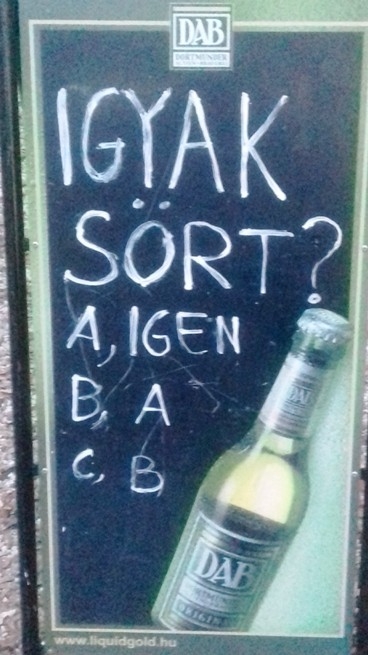 DAB
DORTMUNDER
IGYAK
SÖRT?
A, IGEN
B, A
C, B
DAB
DAB
ORIGINAL
www.liquidgold.hu